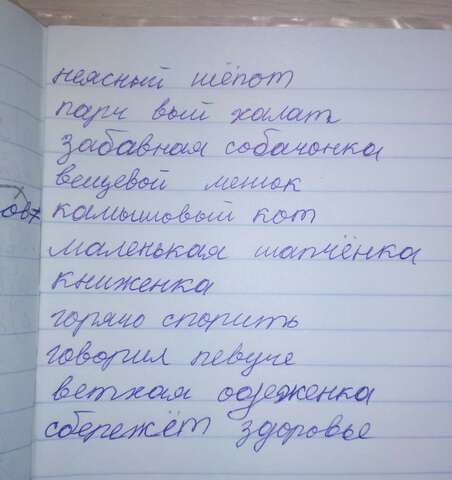 неясный шёпот
парч вый халат
забавная собачонка
вещевой мешок
камышовый кот
маленькая шапчёнка
книженка
горячо спорить
говорил певуче
ветхая одеженка
сбережёт здоровье